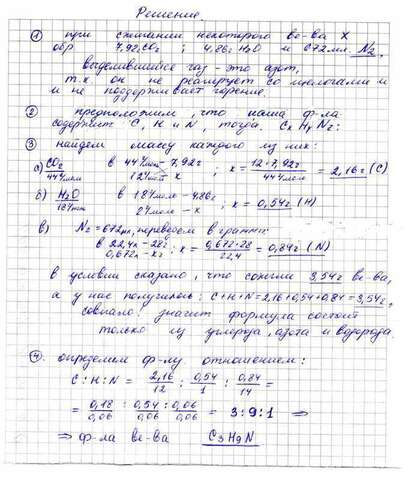 Решение.
① при сжигании некоторого ве-ва X
обр 7,92г CO₂ ; 4,86г H₂O и 672мл. N₂,
выделившийся газ – это азот,
т.к он не реагирует со щелочами и
и не поддерживает горение.
② предположим, что наша ф-ла
содержит C, H и N, тогда: CxHyNz:
③ найдем массу каждого из них:
а) CO₂ / 44г/моль в 44г/моль – 7,92г / 12г/моль – x ; x = 12·7,92г / 44г/моль = 2,16г (C)
б) H₂O / 18г/моль в 18г/моль – 4,86г / 2г/моль – x ; x = 0,54г (H)
в) N₂ = 672мл, переведем в граммы:
в 22,4л – 28г / 0,672л – xг ; x = 0,672·28 / 22,4 = 0,84г (N)
В условии сказано, что сожгли 3,54г ве-ва,
а у нас получилось: C+H+N=2,16+0,54+0,84=3,54г,
совпало, значит формула состоит
только из углерода, азота и водорода.
④ определяем ф-лу отношением:
C : H : N = 2,16/12 : 0,54/1 : 0,84/14 =
= 0,18/0,06 : 0,54/0,06 : 0,06/0,06 = 3:9:1 ⇒
⇒ ф-ла ве-ва C₃H₉N